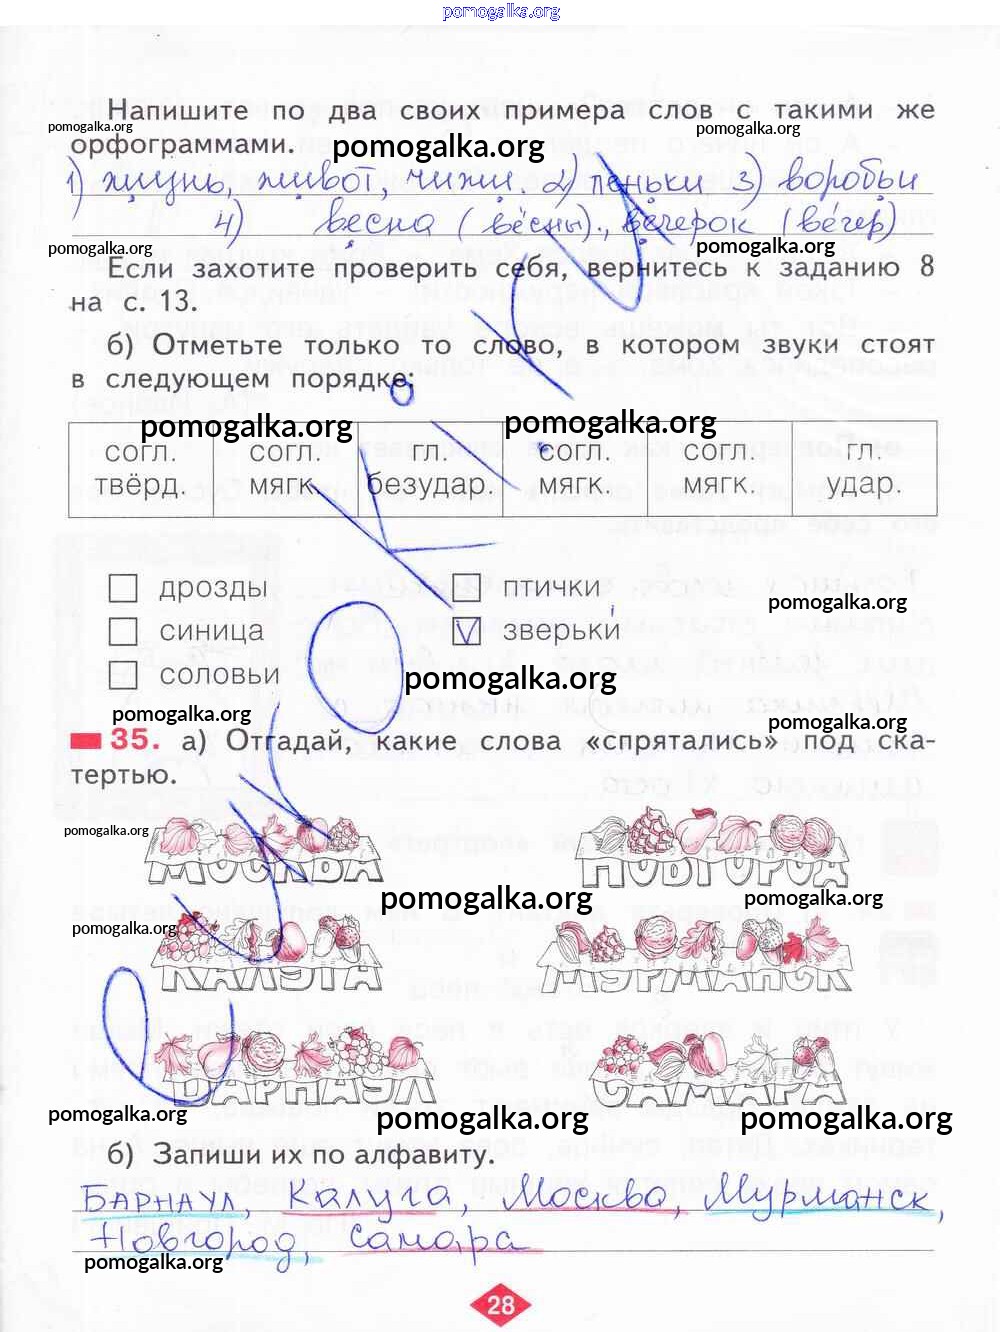 pomogalka.org
Напишите по два своих примера слов с такими же
pomogalka.org pomogalka.org
орфограммами. pomogalka.org
1) жизнь, живот, чижи. 2) пеньки 3) воробьи
4) весна (вéсны)., вечерок (вéчер)
pomogalka.org pomogalka.org
Если захотите проверить себя, вернитесь к заданию 8
на с. 13.
б) Отметьте только то слово, в котором звуки стоят
в следующем порядке:
pomogalka.org pomogalka.org
согл. согл. гл. согл. согл. гл.
твёрд. мягк. безудар. мягк. мягк. удар.
дрозды птички
pomogalka.org
синица V зверьки́
соловьи
pomogalka.org
pomogalka.org pomogalka.org
35. а) Отгадай, какие слова «спрятались» под ска-
тертью.
pomogalka.org
МОСКВА НОВГОРОД
pomogalka.org pomogalka.org
pomogalka.org
КАЛУГА МУРМАНСК
БАРНАУЛ САМАРА
pomogalka.org pomogalka.org pomogalka.org
б) Запиши их по алфавиту.
Барнаул, Калуга, Москва, Мурманск,
Новгород, Самара
pomogalka.org pomogalka.org
28